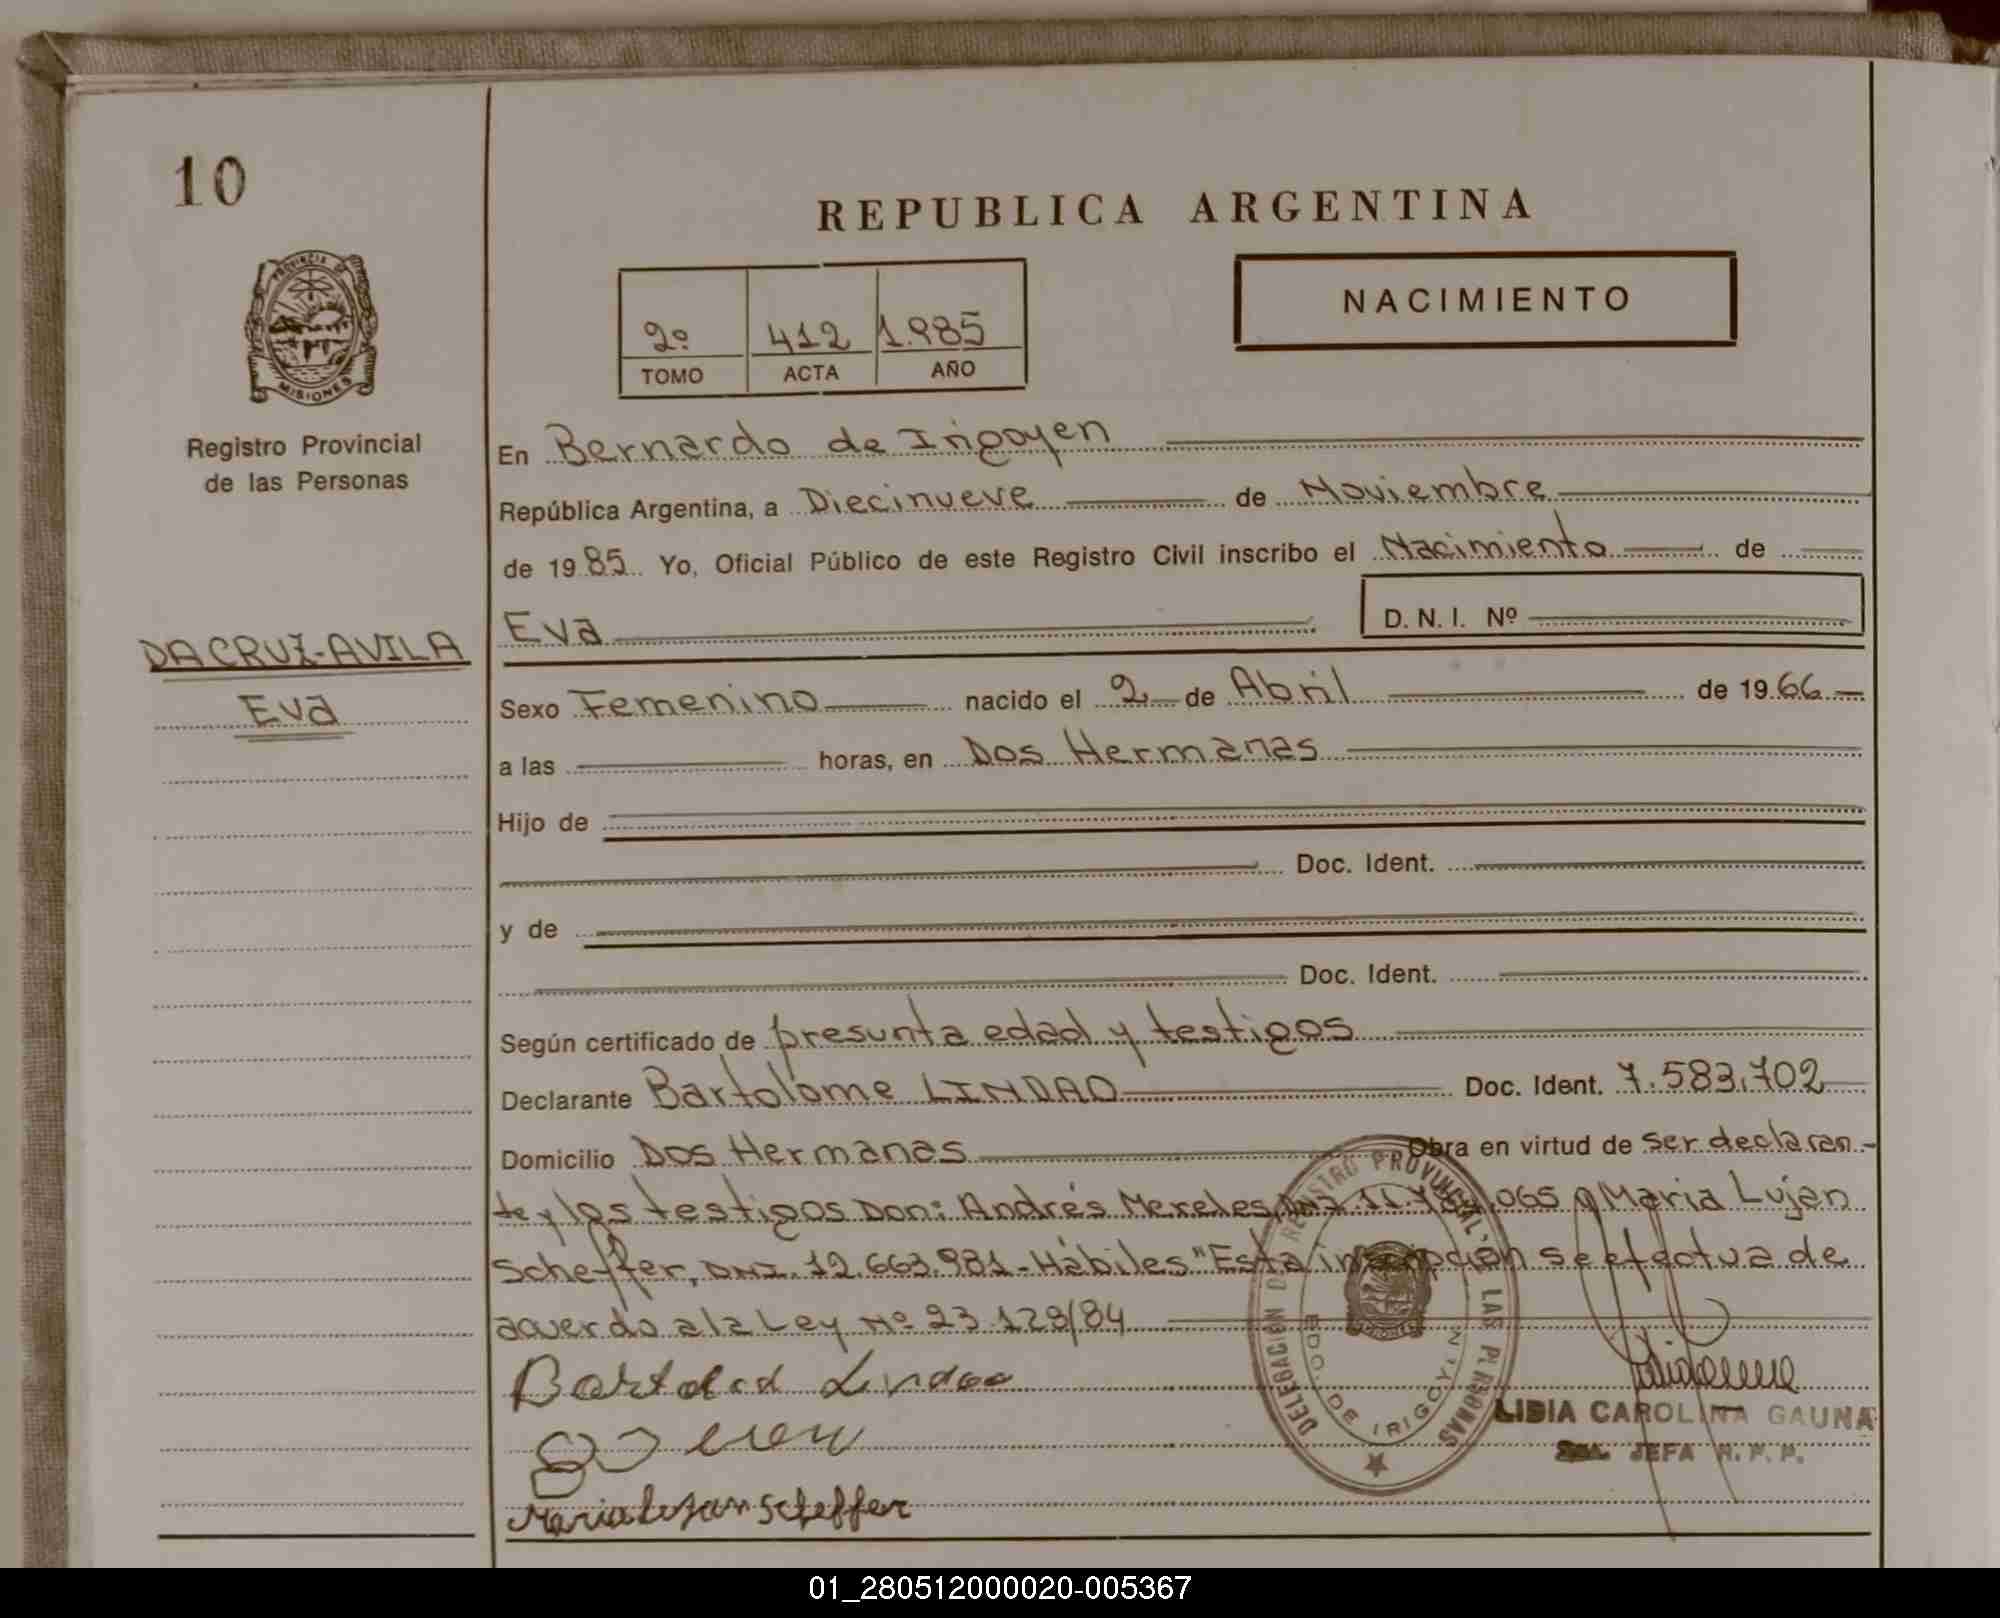 10
PROVINCIA DE
MISIONES
Registro Provincial
de las Personas
DA CRUZ-AVILA
Eva
REPUBLICA ARGENTINA
2º 412 1.985
TOMO ACTA AÑO
NACIMIENTO
En Bernardo de Irigoyen
República Argentina, a Diecinueve de Noviembre
de 19 85 Yo, Oficial Público de este Registro Civil inscribo el Nacimiento de
Eva D. N. I. Nº
Sexo Femenino nacido el 2 de Abril de 19 66
a las horas, en Dos Hermanas
Hijo de
Doc. Ident.
y de
Doc. Ident.
Según certificado de presunta edad y testigos
Declarante Bartolome LINDAO Doc. Ident. 7.583.702
Domicilio Dos Hermanas Obra en virtud de ser declaran-
te y los testigos Don: Andrés Mereles, DNI. 11. .065 y Maria Lujan
Scheffer, DNI. 12.663.981-Hábiles "Esta inscripción se efectua de
acuerdo a la Ley Nº 23.128/84
DELEGACION DE REGISTRO PROVINCIAL DE LAS PERSONAS
BDO. DE IRIGOYEN
Lindao
LIDIA CAROLINA GAUNA
JEFA R. P. P.
Maria Lujan Scheffer
01_280512000020-005367